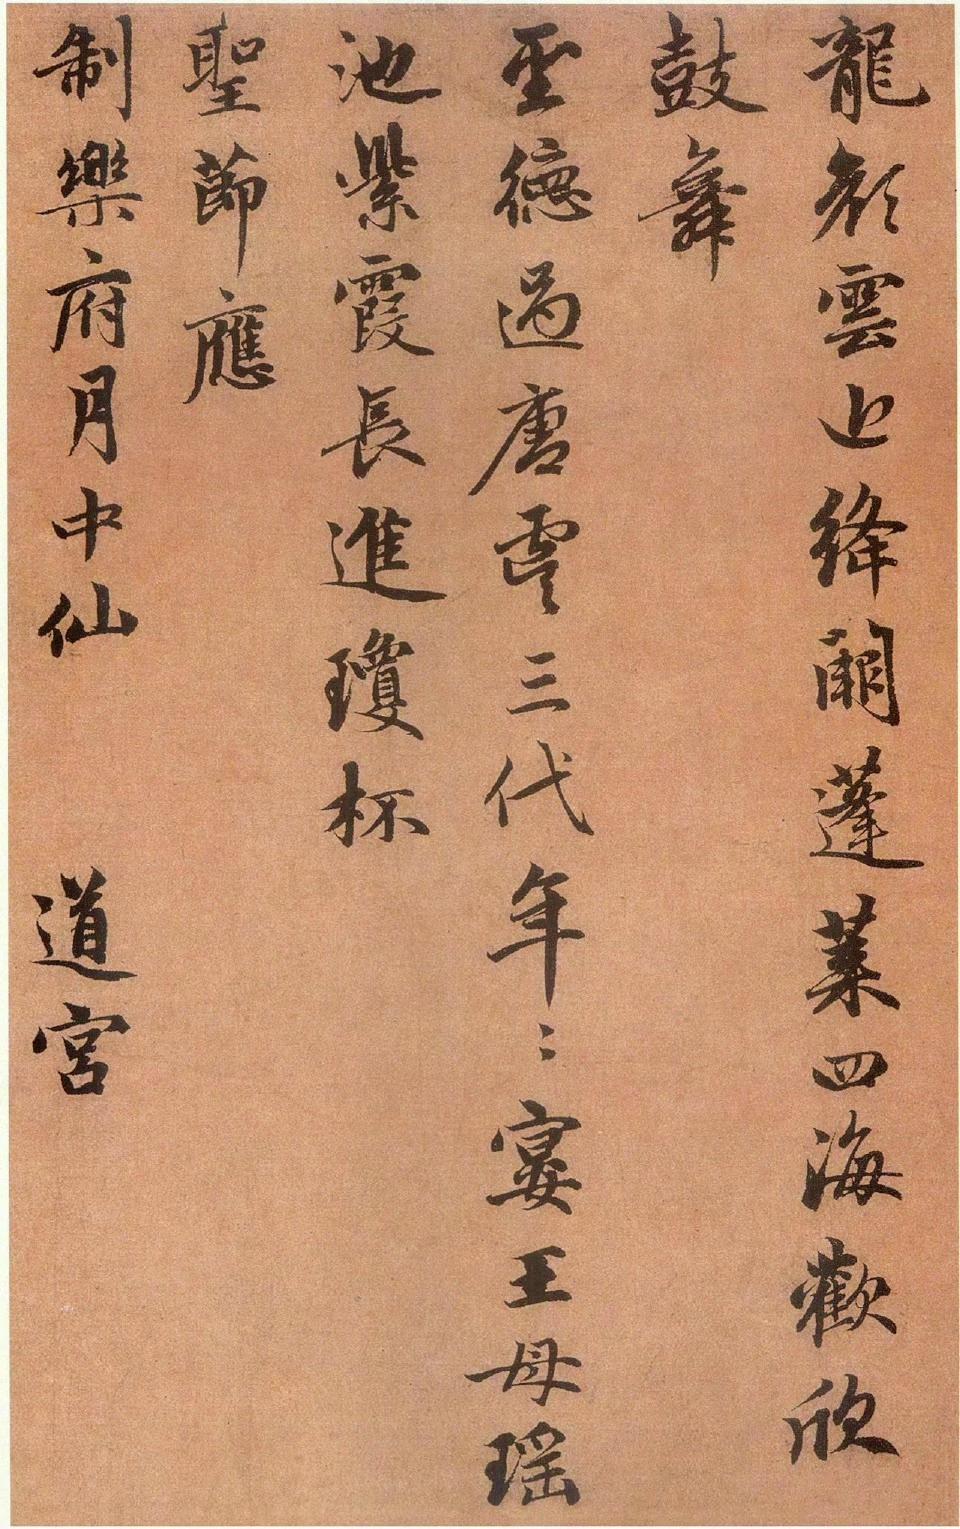 龍顏雲近絳闕蓬萊四海歡欣
鼓舞
聖德過唐虞三代年〻宴王母瑤
池紫霞長進瓊杯
聖節應
制樂府月中仙　道宮